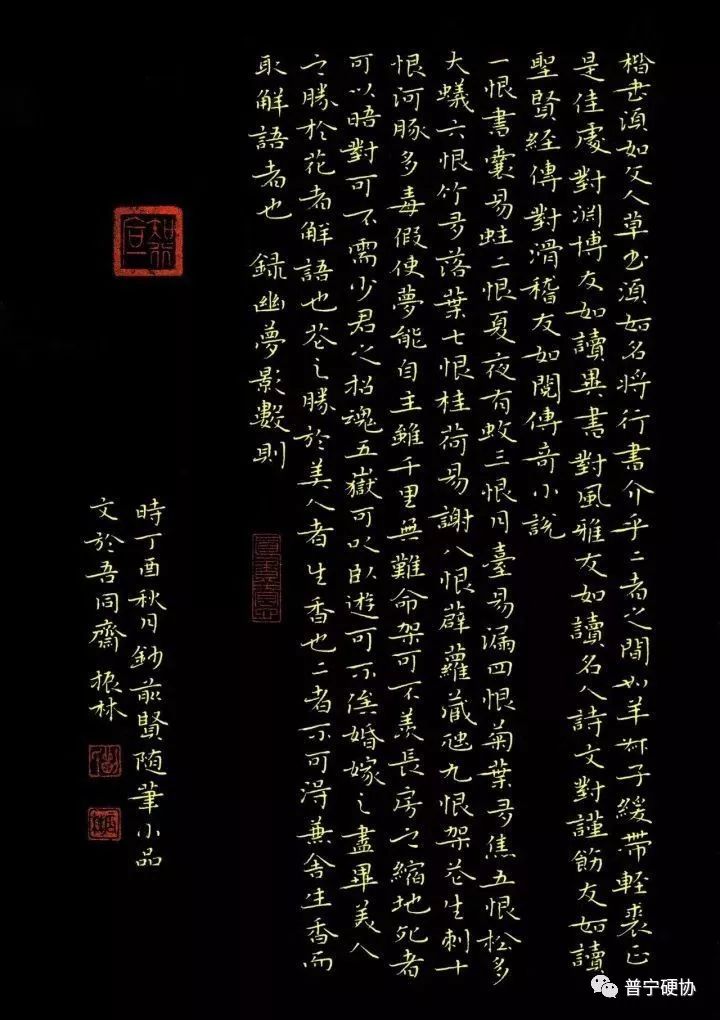 楷書須如文人草書須如名將行書介乎二者之間如羊叔子緩帶輕裘正
是佳處對淵博友如讀異書對風雅友如讀名人詩文對謹飭友如讀
聖賢經傳對滑稽友如閱傳奇小說
一恨書囊易蛀二恨夏夜有蚊三恨月臺易漏四恨菊葉多焦五恨松多
大蟻六恨竹多落葉七恨桂荷易謝八恨薜蘿藏虺九恨架花生刺十
恨河豚多毒假使夢能自主雖千里無難命架可不羨長房之縮地死者
可以晤對可不需少君之招魂五嶽可以臥遊可不俟婚嫁之盡畢美人
之勝於花者解語也花之勝於美人者生香也二者不可得兼舍生香而
取解語者也 錄幽夢影數則
時丁酉秋月鈔前賢隨筆小品
文於吾同齋 振林
知行合一
普宁硬协